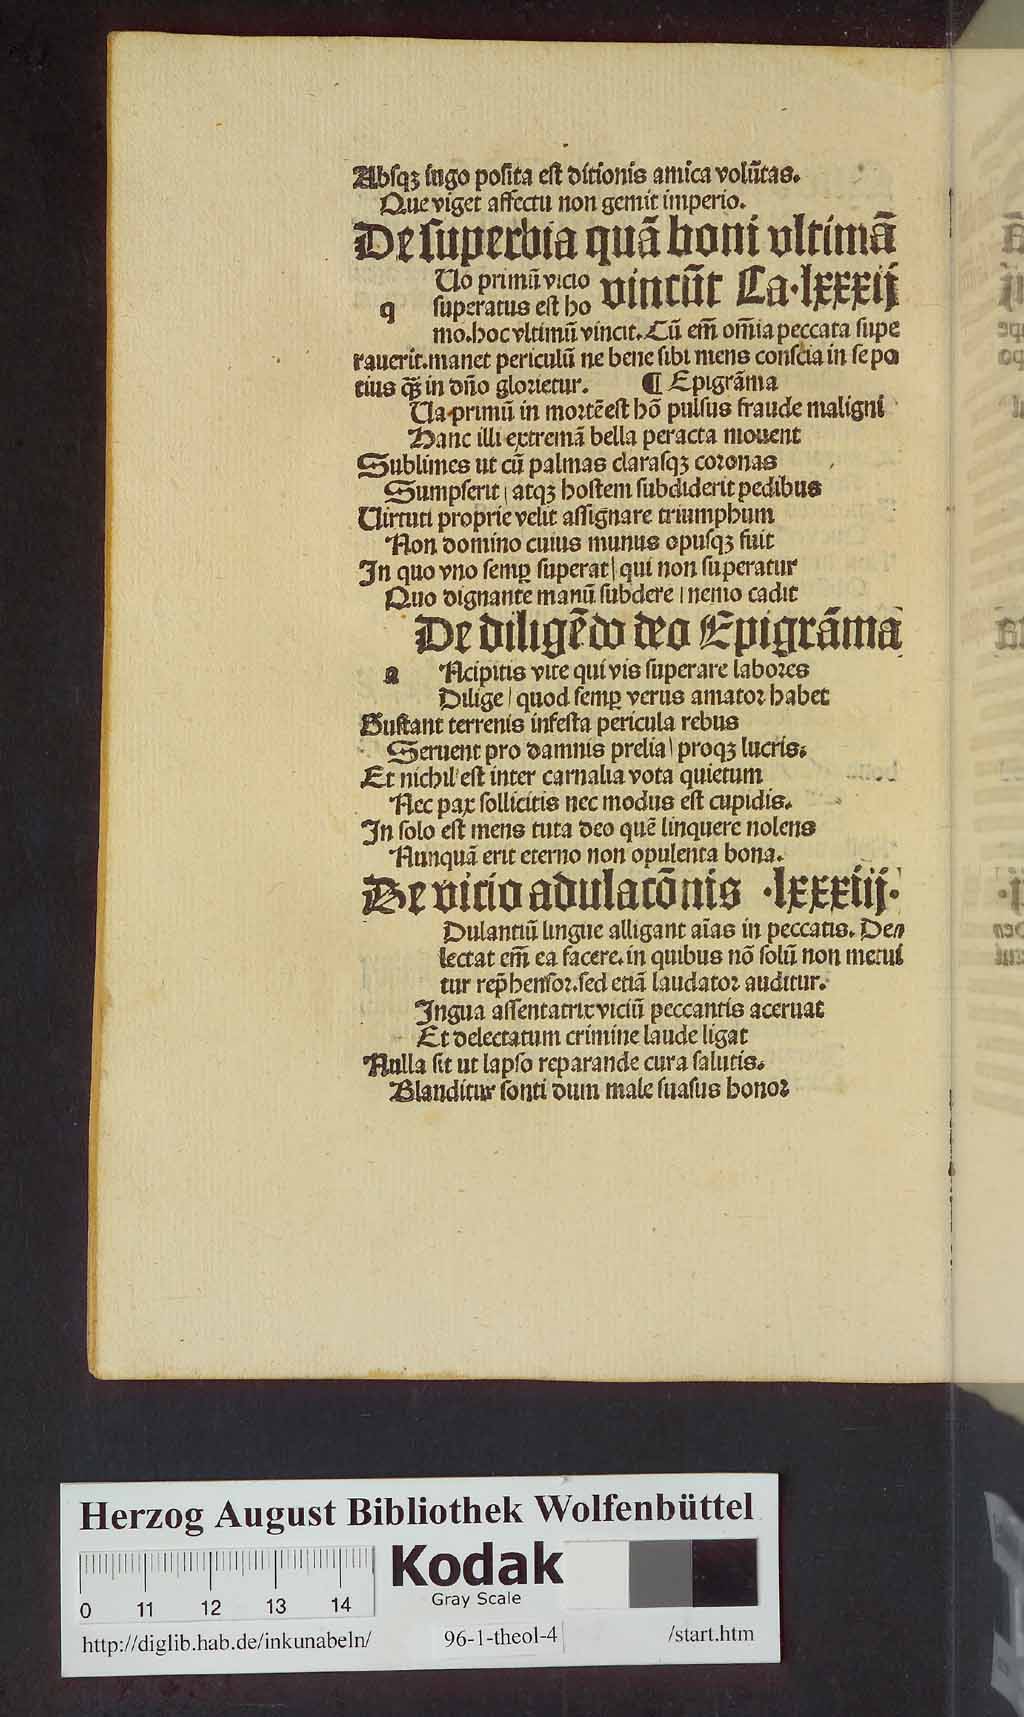 Absqꝫ iugo posita est ditionis amica volũtas.
Que viget affectu non gemit imperio.
De superbia quã boni vltimã
vincũt Ca·lxxxij
q Uo primũ vicio
superatus est ho
mo.hoc vltimũ vincit. Cũ em̃ om̃ia peccata supe
rauerit.manet periculũ ne bene sibi mens conscia in se po
tius q̃ꝫ in dño glorietur. ¶ Epigrãma
Ua primũ in mortẽ est hõ pulsus fraude maligni
Hanc illi extremã bella peracta mouent
Sublimes ut cũ palmas clarasqꝫ coronas
Sumpserit / atqꝫ hostem subdiderit pedibus
Uirtuti proprie velit assignare triumphum
Non domino cuius munus opusqꝫ fuit
In quo vno semꝑ superat / qui non superatur
Quo dignante manũ subdere / nemo cadit
De diligẽdo deo Epigrãma
a Ncipitis vite qui vis superare labores
Dilige / quod semꝑ verus amator habet
Gustant terrenis infesta pericula rebus
Seruent pro damnis prelia / proqꝫ lucris.
Et nichil est inter carnalia vota quietum
Nec pax sollicitis nec modus est cupidis.
In solo est mens tuta deo quẽ linquere nolens
Nunquã erit eterno non opulenta bona.
De vitio adulatõnis ·lxxxiij·
Dulantiũ lingue alligant aĩas in peccatis. De⸗
lectat em̃ ea facere. in quibus nõ solũ non metui
tur rep̃hensor.sed etiã laudator auditur.
Ingua assentatrix viciũ peccantis aceruat
Et delectatum crimine laude ligat
Nulla sit ut lapso reparande cura salutis.
Blanditur sonti dum male suasus honor
Herzog August Bibliothek Wolfenbüttel
Kodak
Gray Scale
0 11 12 13 14
http://diglib.hab.de/inkunabeln/ 96-1-theol-4 /start.htm